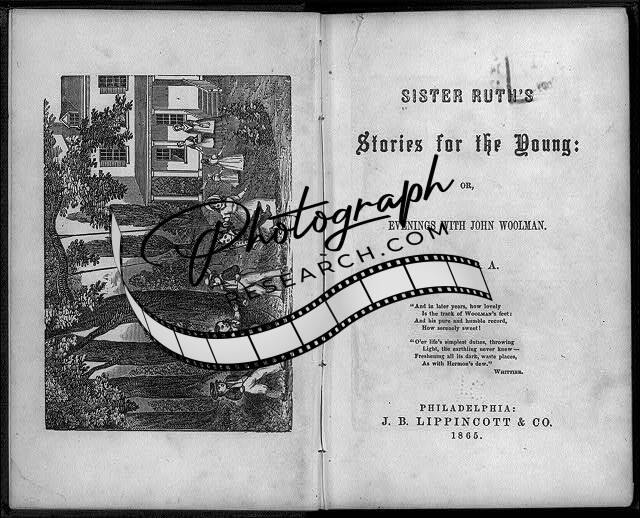 SISTER RUTH'S
Stories for the Young:
OR,
EVENINGS WITH JOHN WOOLMAN.
A.
"And in later years, how lovely
Is the track of WOOLMAN'S feet!
And his pure and humble record,
How serenely sweet!
"O'er life's simplest duties, throwing
Light, the earthling never knew—
Freshening all its dark, waste places,
As with Hermon's dew."
WHITTIER.
PHILADELPHIA:
J. B. LIPPINCOTT & CO.
1865.
Photograph
RESEARCH.COM